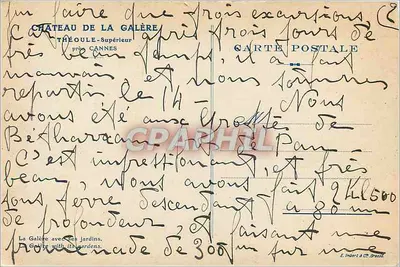 pu faire que trois excursions (2
CHÂTEAU DE LA GALÈRE
THÉOULE-Supérieur
près CANNES
CARTE POSTALE
Car après trois jours de
très beau temps, il a fait
mauvais et nous sommes
repartis le 14 - Nous
avons été aux Grottes de
Bétharram et de Pau -
C'est impressionnant, et très
beau, nous avons fait 2 Kl 500
sous terre descendant à 80 m
de profondeur, et faisant une
promenade de 300 m sur
La Galère avec ses jardins.
La Galère with its gardens.
CPARAMA